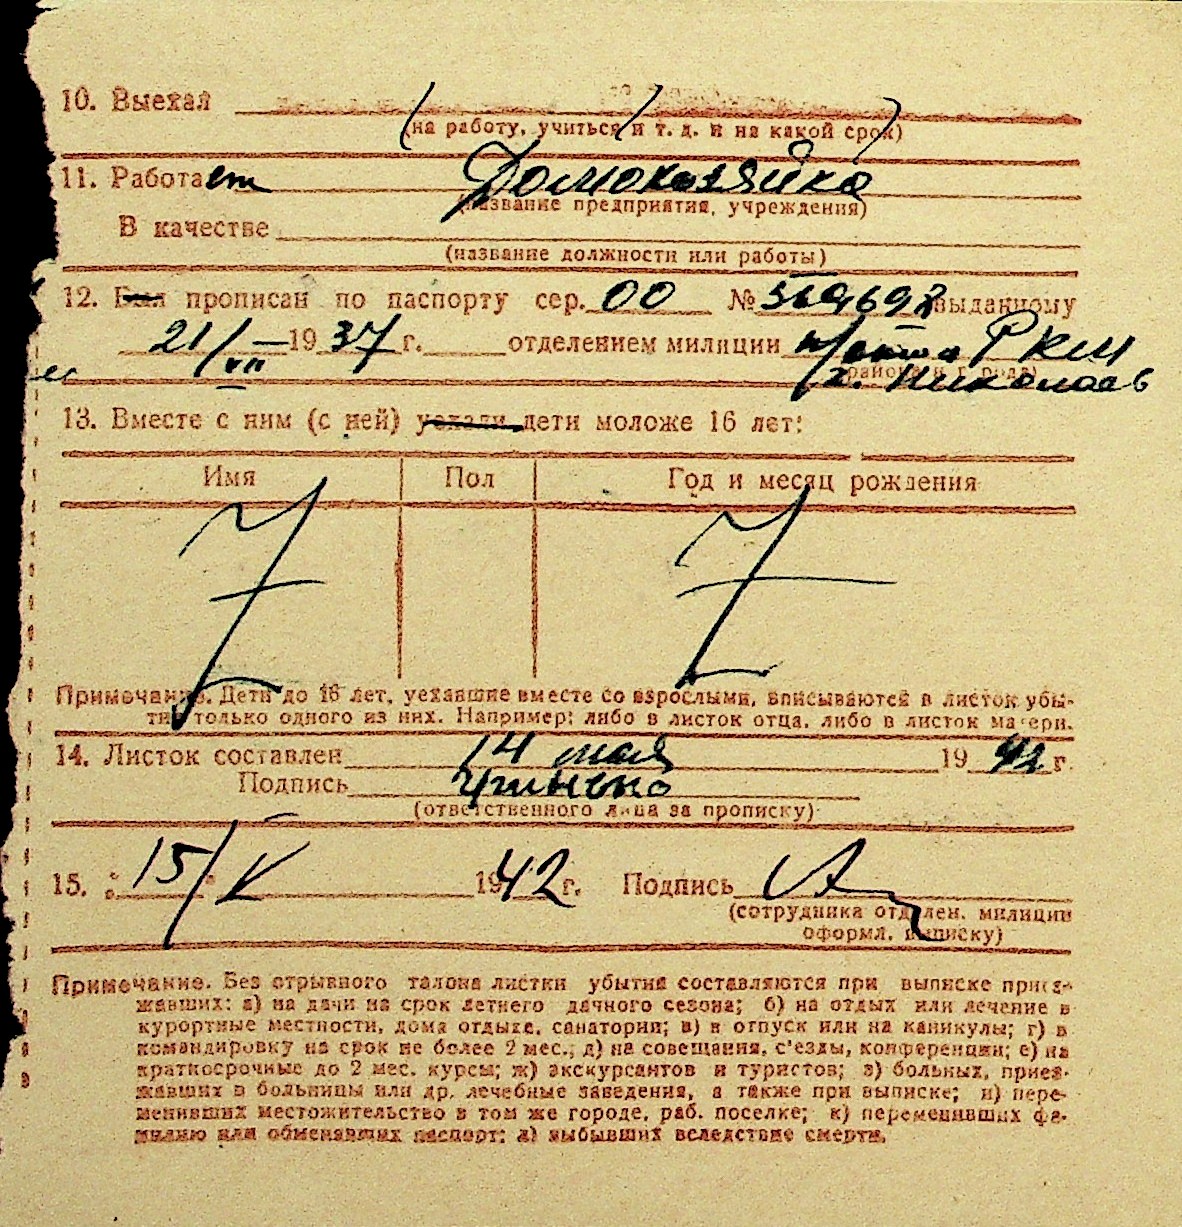 10. Выехал
(на работу, учиться и т. д. и на какой срок)
11. Работает Домохозяйка
(название предприятия, учреждения)
В качестве
(название должности или работы)
12. Был прописан по паспорту сер. 00 № выданному
21/VII 1937 г. отделением милиции РКМ
(района и города)
г. Николаев
13. Вместе с ним (с ней) уехали дети моложе 16 лет:
Имя Пол Год и месяц рождения
Примечание. Дети до 16 лет, уехавшие вместе со взрослыми, вписываются в листок убы-
тия только одного из них. Например: либо в листок отца, либо в листок матери.
14. Листок составлен 14 мая 19 г.
Подпись
(ответственного лица за прописку)
15. 15/V 1942 г. Подпись
(сотрудника отделен. милиции
оформл. выписку)
Примечание. Без отрывного талона листки убытия составляются при выписке приез-
жавших: а) на дачи на срок летнего дачного сезона; б) на отдых или лечение в
курортные местности, дома отдыха, санатории; в) в отпуск или на каникулы; г) в
командировку на срок не более 2 мес.; д) на совещания, с'езды, конференции; е) на
краткосрочные до 2 мес. курсы; ж) экскурсантов и туристов; з) больных, приез-
жавших в больницы или др. лечебные заведения, а также при выписке; и) пере-
менивших местожительство в том же городе, раб. поселке; к) переменивших фа-
милию или обменявших паспорт; л) выбывших вследствие смерти.